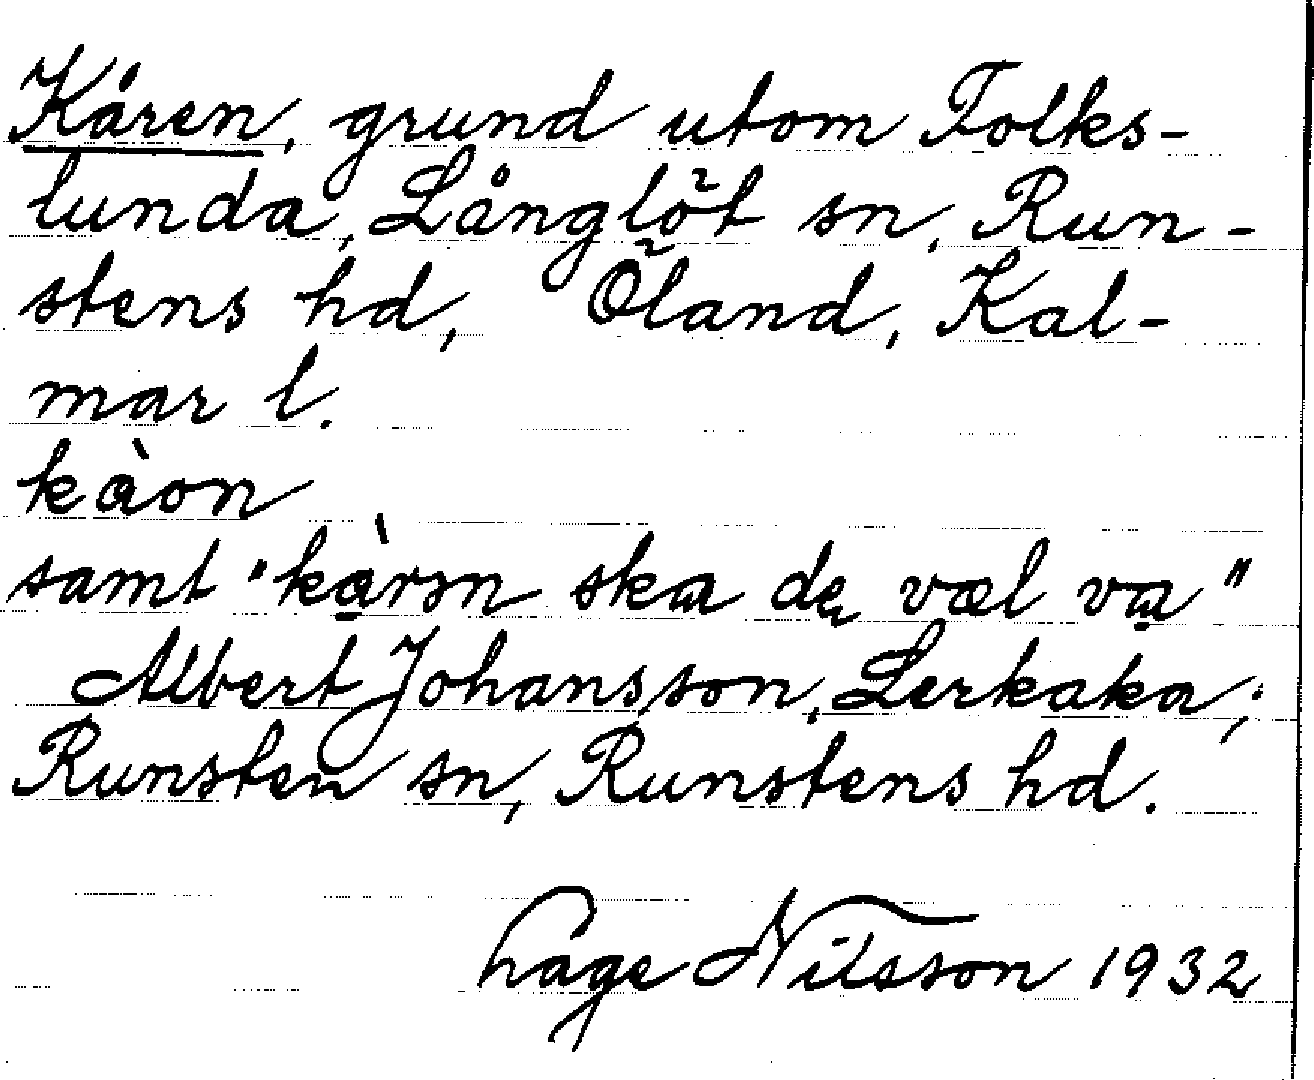 Kåren, grund utom Folks-
lunda, Långlöt sn, Run-
stens hd, Öland, Kal-
mar l.
kàon
samt "kàrɔn ska de væl va"
Albert Johansson, Lerkaka,;
Runsten sn, Runstens hd.
Hage Nilsson 1932